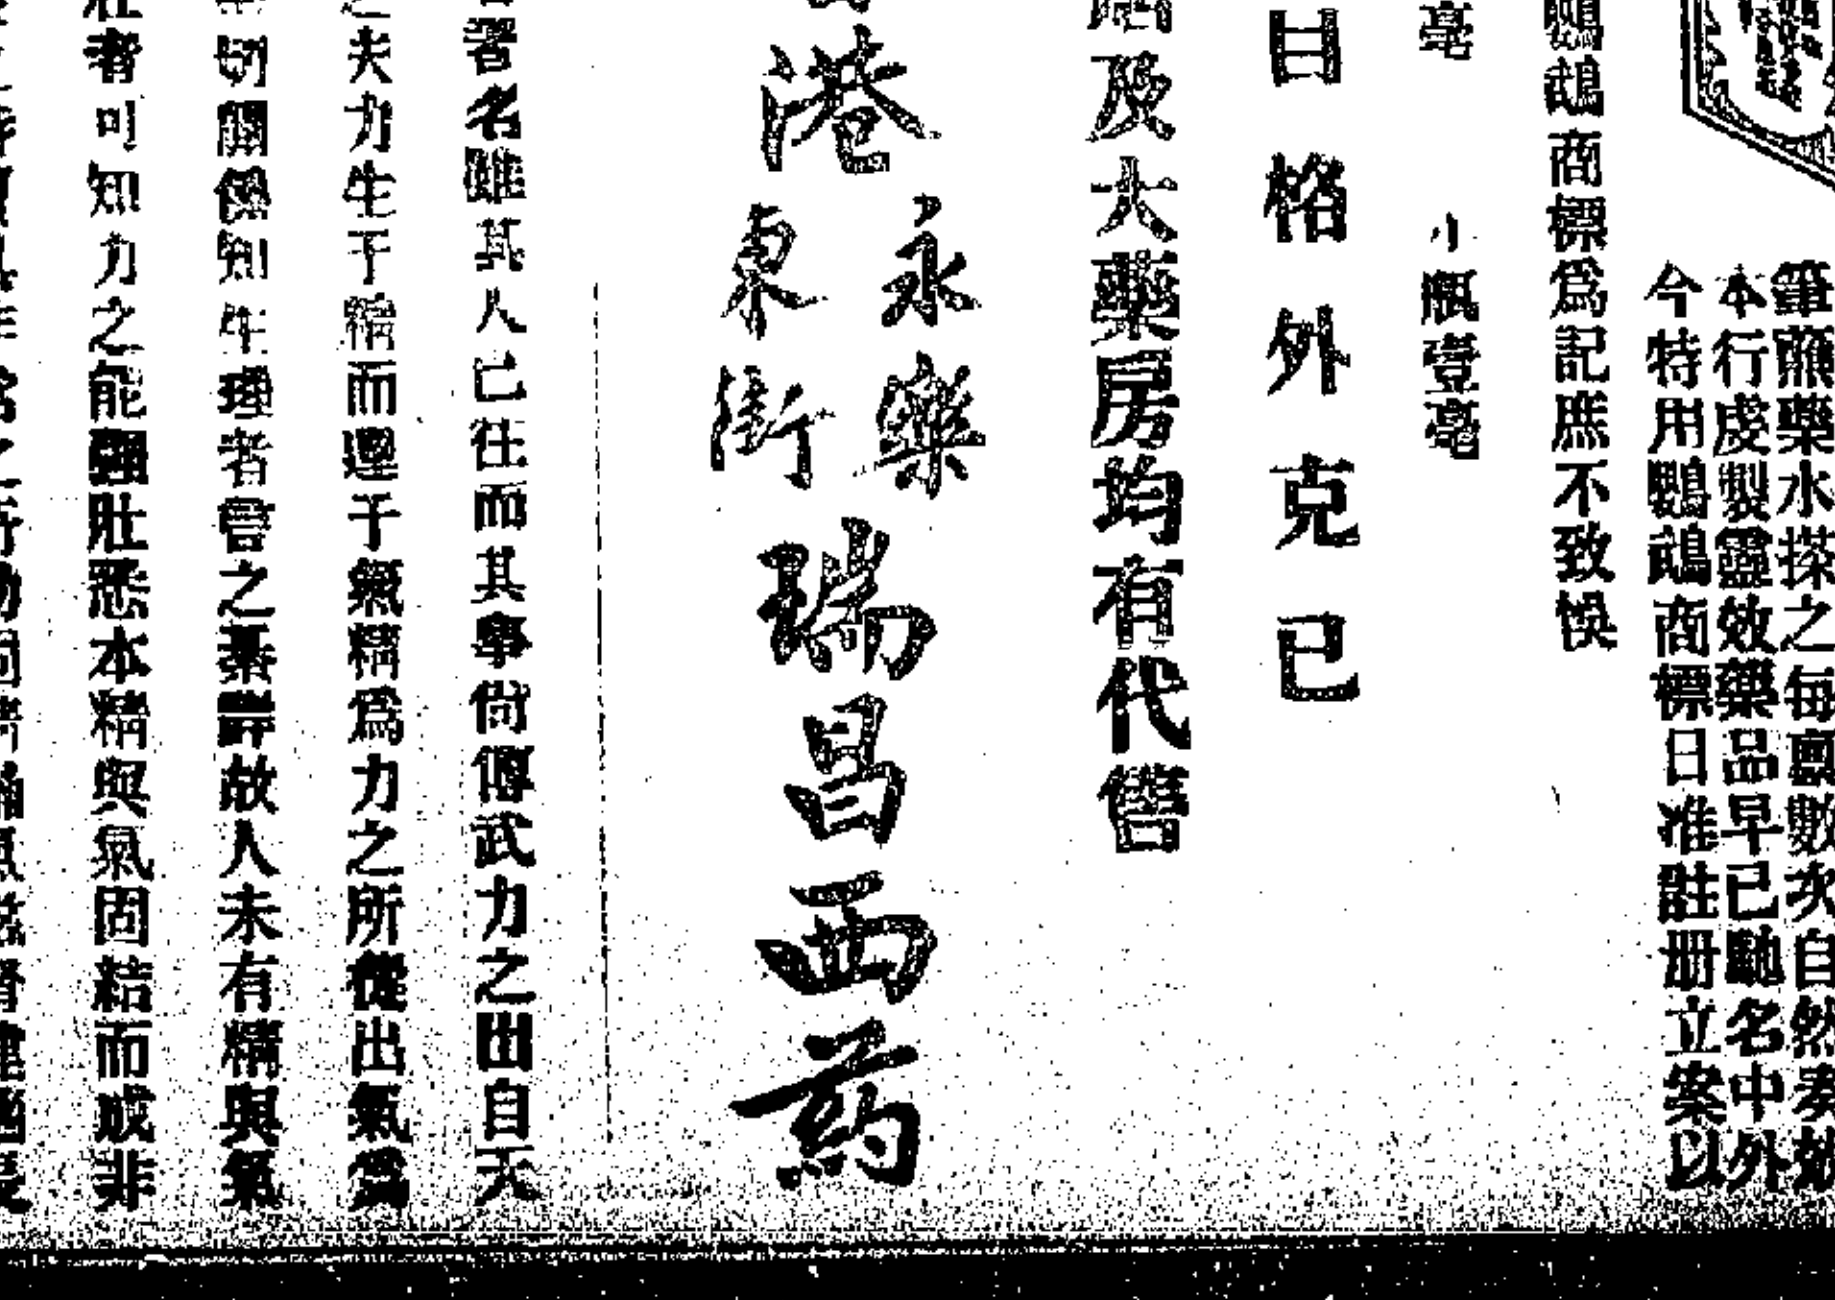 筆蘸藥水搽之每朝數次自然奏效
本行虔製靈效藥品早已馳名中外
今特用鸚鵡商標日准註册立案以
鸚鵡商標爲記庶不致悞
毫 小瓶壹毫
日格外克已
及大藥房均有代售
港永樂東街瑞昌西药
署名雖其人已往而其事尙傳武力之出自天
之夫力生于精而運于氣精爲力之所從出氣爲
切關係知生理者言之綦詳故人未有精與氣
壯者可知力之能強壯悉本精與氣固結而成非